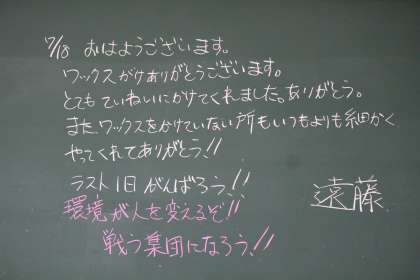 7/18 おはようございます。
ワックスがけありがとうございます。
とてもていねいにかけてくれました。ありがとう。
また、ワックスをかけていない所もいつもよりも細かく
やってくれてありがとう!!
ラスト1日がんばろう!!
環境が人を変えるぞ!!
戦う集団になろう!!
遠藤